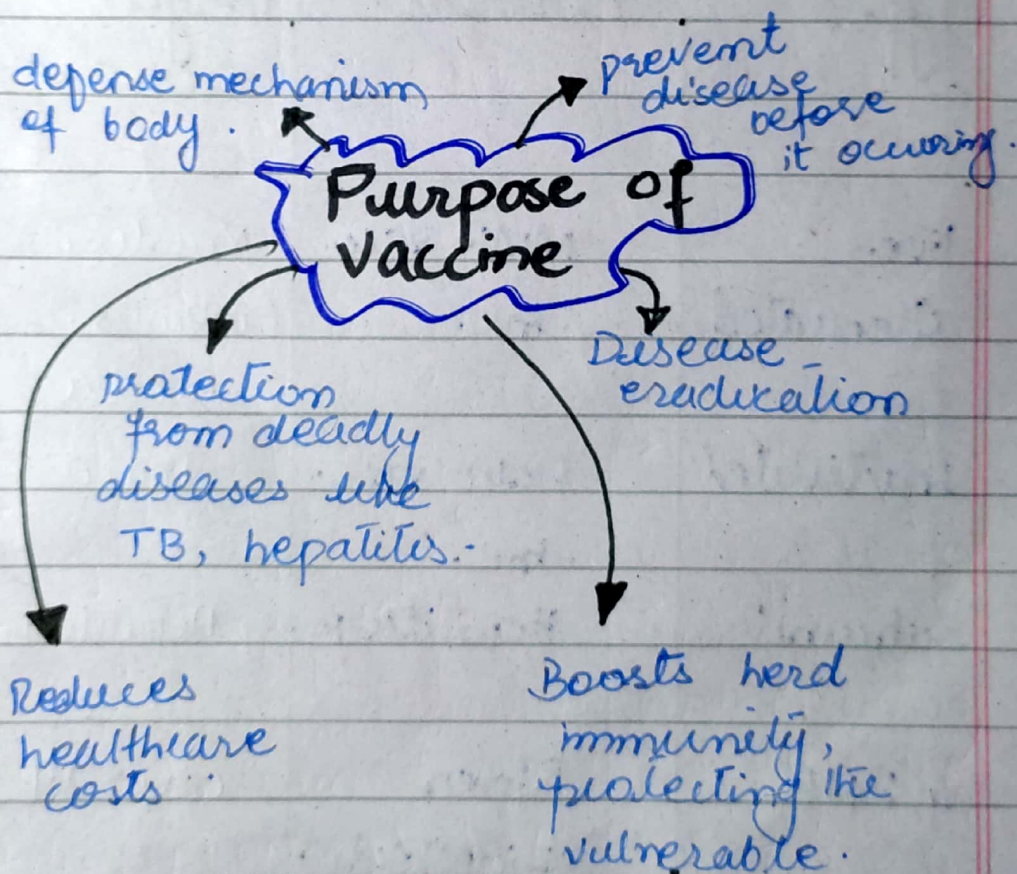 defense mechanism
of body.
prevent
disease
before
it occuring.
Purpose of
vaccine
Disease
eradication
protection
from deadly
diseases like
TB, hepatitis.
Reduces
healthcare
costs
Boosts herd
immunity,
protecting the
vulnerable.